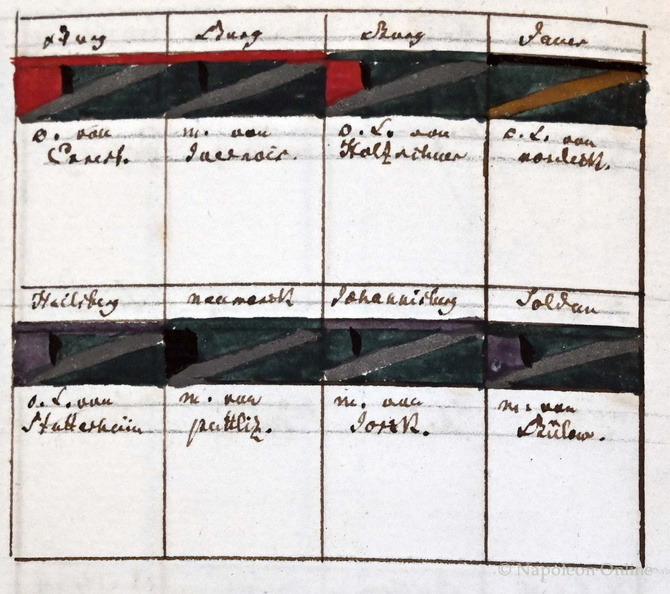 Burg
Burg
Burg
Jauer
o. von
Ernest.
m. von
Ivernois.
o. L. von
Holzschuer
o. L. von
nordeck.
Heilsberg
neumarck
Johannisburg
Soldau
o. L. von
Stutterheim
m. von
puttliz.
m. von
Jorck.
m. von
Bülow.
© Napoleon Online